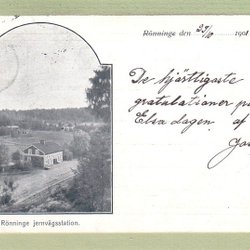 Rönninge den 29/10 1901
De hjärtligaste
gratulationer på
Elsa dagen af
Rönninge jernvägsstation.